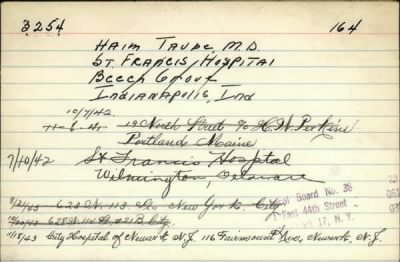 3254 164
HAIM TAUBE, M.D.
ST. FRANCIS HOSPITAL
BEECH GROVE
INDIANAPOLIS, IND
10/7/42
19 North Street c/o H. W. Perkins
Portland Maine
7/10/42 St Francis Hospital
Wilmington, Delaware
8/21/43 623 W. 113 St. New York City
628 W. 114 St. N.Y. City
11/15/43 City Hospital of Newark N.J. 116 Fairmount Ave, Newark, N.J.
Board No. 36
East 44th Street
17, N. Y.